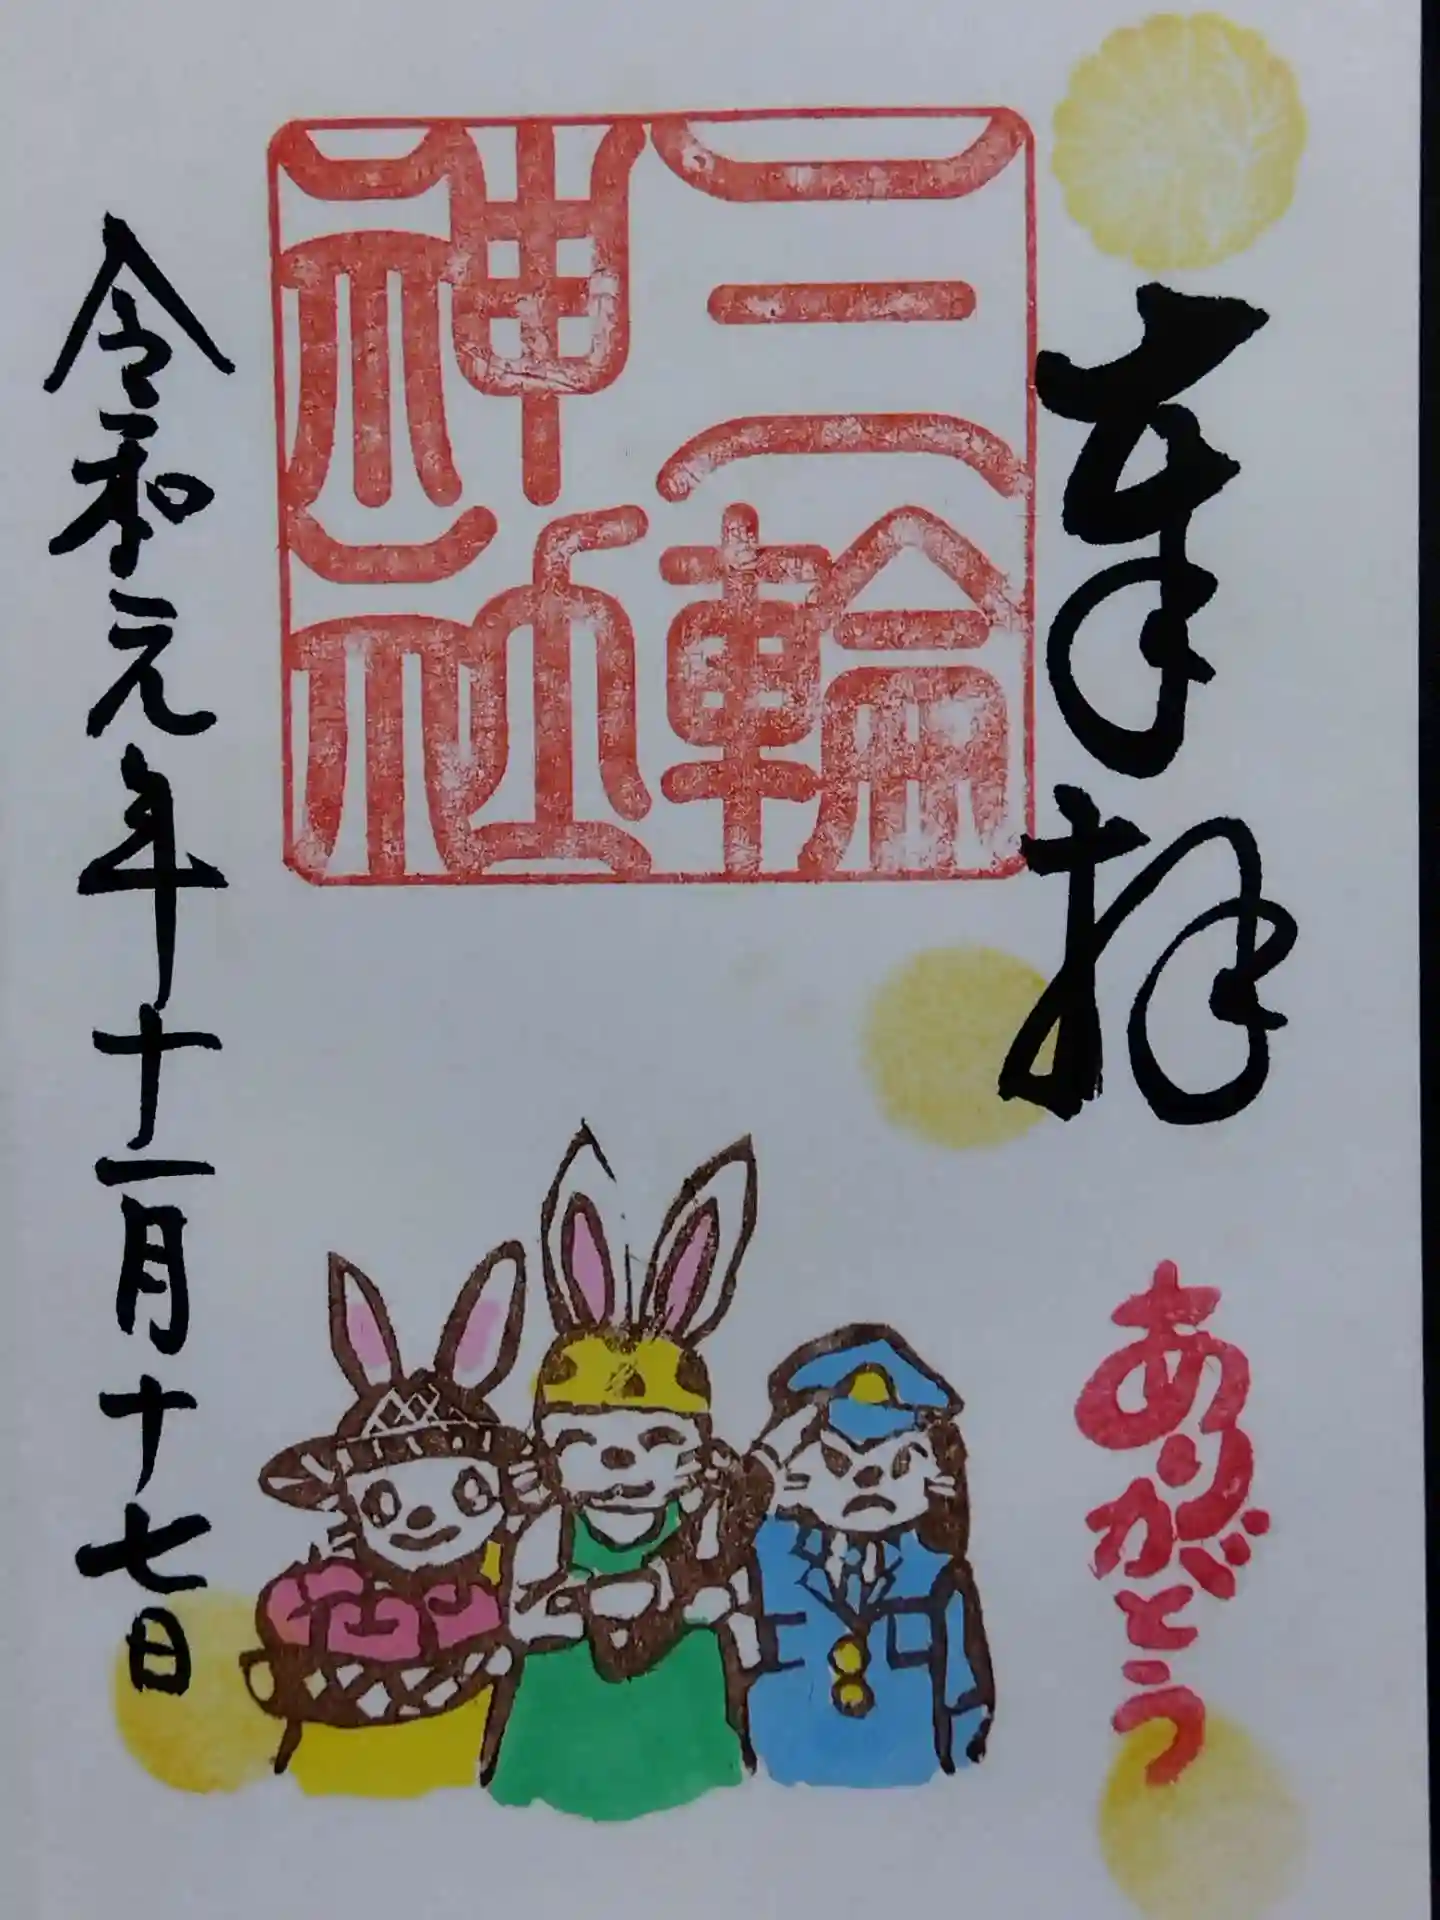 奉拝
ありがとう
三輪
神社
令和元年十一月十七日